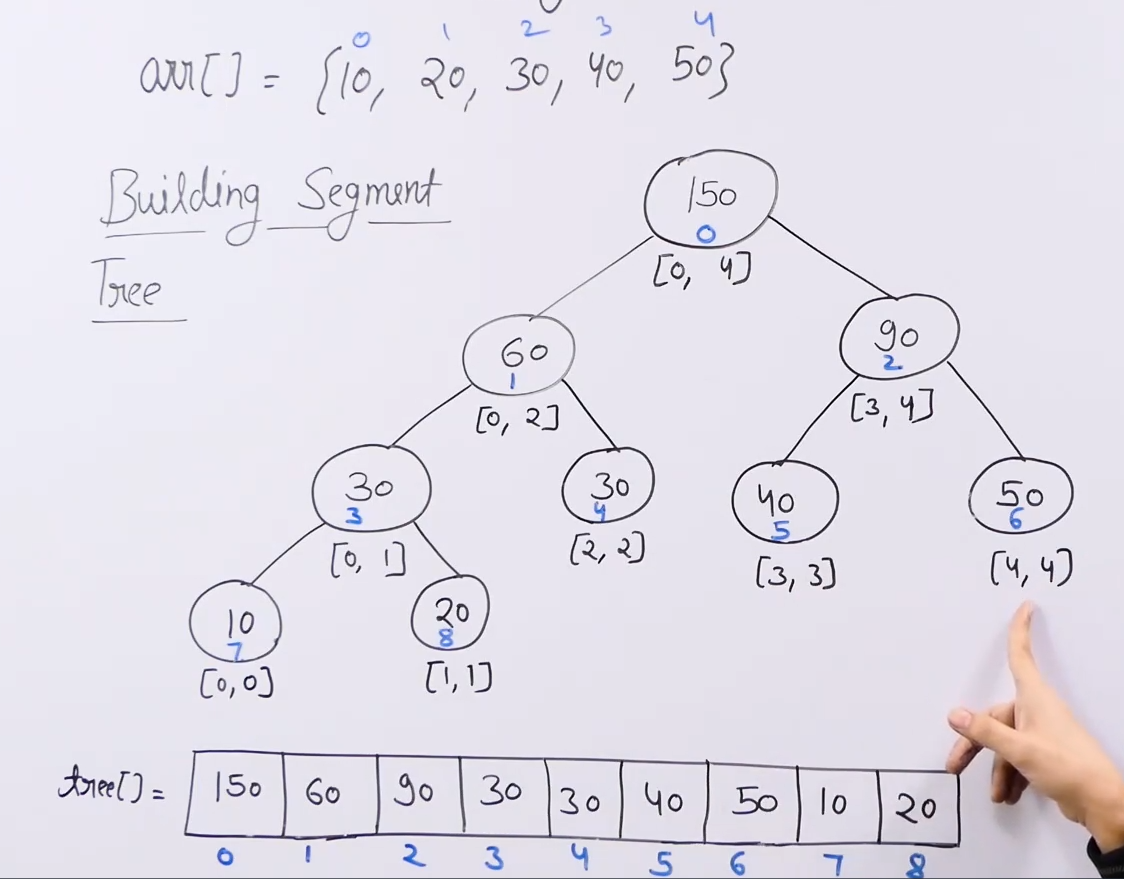 0 1 2 3 4
arr[] = {10, 20, 30, 40, 50}
Building Segment
Tree
150
0
[0, 4]
60
1
[0, 2]
90
2
[3, 4]
30
3
[0, 1]
30
4
[2, 2]
40
5
[3, 3]
50
6
[4, 4]
10
7
[0,0]
20
8
[1,1]
tree[] = 150 60 90 30 30 40 50 10 20
0 1 2 3 4 5 6 7 8